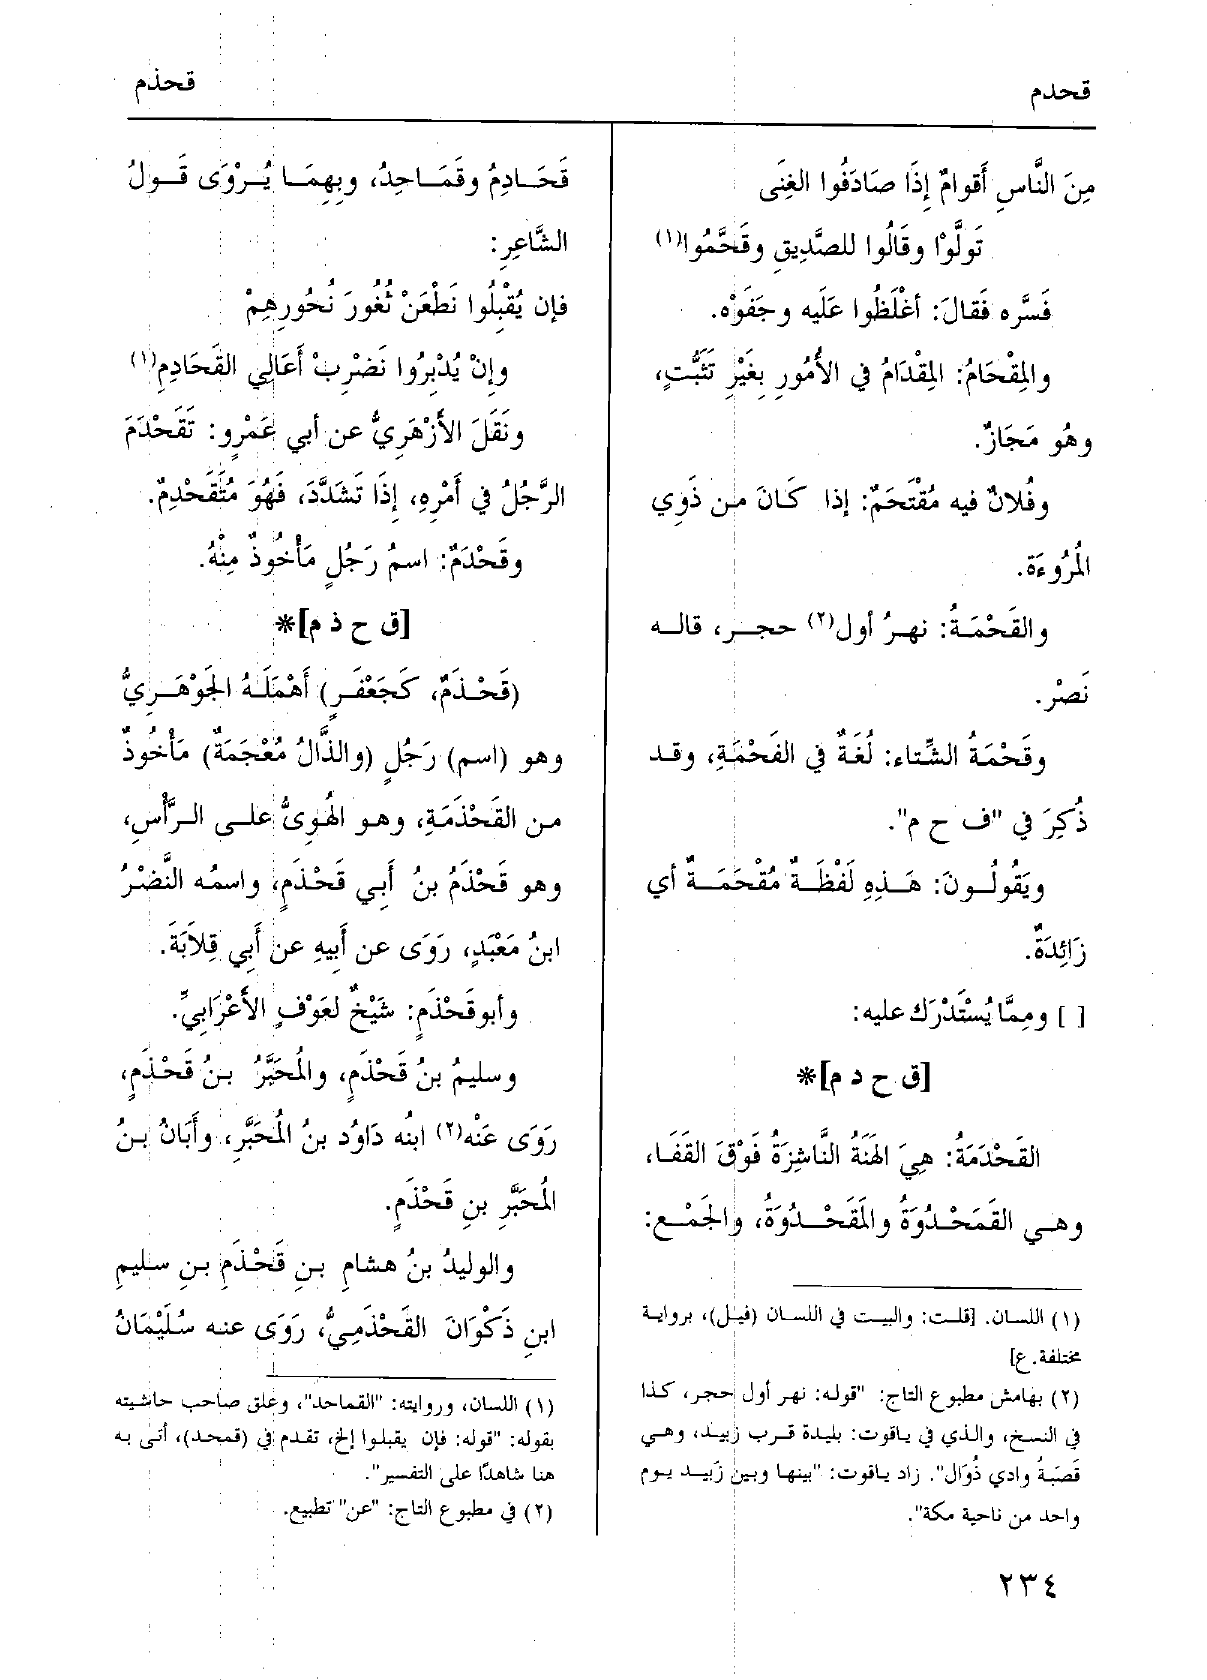 قحدم
قحذم
مِنَ النَّاسِ أَقوامٌ إِذَا صَادَفُوا الغِنَى
تَولَّوْا وقَالُوا للصَّدِيقِ وقَحَّمُوا(١)
فَسَّره فَقالَ: أغْلَظُوا عَلَيه وجَفَوْه.
والمِقْحَامُ: المِقْدَامُ في الأُمُورِ بِغَيْرِ تَثَبُّتٍ،
وهُو مَجَازٌ.
وفُلانٌ فيه مُقْتَحَمٌ: إذا كَانَ من ذَوِي
المُرُوءَة.
والقَحْمَةُ: نهرُ أول(٢) حجر، قاله
نَصْر.
وقَحْمَةُ الشِّتاء: لُغَةٌ في الفَحْمَةِ، وقد
ذُكِرَ في "ف ح م".
ويَقُولُونَ: هَذِهِ لَفْظَةٌ مُقْحَمَةٌ أي
زَائِدَةٌ.
[ ] ومِمَّا يُسْتَدْرَك عليه:
[ق ح د م]*
القَحْدَمَةُ: هِيَ الهَنَةُ النَّاشِزَةُ فَوْقَ القَفَا،
وهي القَمَحْدُوَةُ والمَقَحْدُوَةُ، والجَمْع:
(١) اللسان. [قلت: والبيت في اللسان (فيل)، برواية
مختلفة. ع]
(٢) بهامش مطبوع التاج: "قوله: نهر أول حجر، كذا
في النسخ، والذي في ياقوت: بليدة قرب زبيد، وهي
قصَبةُ وادي ذُوَال". زاد ياقوت: "بينها وبين زَبيد يوم
واحد من ناحية مكة".
قَحَادِمُ وقَمَاحِدُ، وبِهِمَا يُرْوَى قَولُ
الشَّاعِرِ:
فإن يُقْبِلُوا نَطْعَنْ ثُغُورَ نُحُورِهِمْ
وإنْ يُدْبِرُوا نَضْرِبْ أَعَالِي القَحَادِمِ(١)
ونَقَلَ الأَزْهَرِيُّ عن أبي عَمْرٍو: تَقَحْدَمَ
الرَّجُلُ في أَمْرِهِ، إِذَا تَشَدَّدَ، فَهُوَ مُتَقَحْدِمٌ.
وقَحْدَمٌ: اسمُ رَجُلٍ مَأْخُوذٌ مِنْهُ.
[ق ح ذ م]*
(قَحْذَمٌ، كَجَعْفَرٍ) أَهْمَلَهُ الجَوْهَرِيُّ
وهو (اسم) رَجُلٍ (والذَّالُ مُعْجَمَةٌ) مَأْخُوذٌ
من القَحْذَمَةِ، وهو الهُوِيُّ على الرَّأْسِ،
وهو قَحْذَمُ بنُ أَبِي قَحْذَمٍ، واسمُه النَّضْرُ
ابنُ مَعْبَدٍ، رَوَى عن أَبِيهِ عن أَبي قِلاَبَةَ.
وأبوقَحْذَمٍ: شَيْخٌ لعَوْفٍ الأَعْرَابِيِّ.
وسليمُ بنُ قَحْذَمٍ، والمُحَبَّرُ بنُ قَحْذَمٍ،
رَوَى عَنْه(٢) ابنُه دَاوُد بنُ المُحَبَّرِ، وأَبَانُ بنُ
المُحَبَّرِ بنِ قَحْذَمٍ.
والوليدُ بنُ هشامِ بنِ قَحْذَمِ بنِ سليمِ
ابنِ ذَكْوَانَ القَحْذَمِيُّ، رَوَى عنه سُلَيْمَانُ
(١) اللسان، وروايته: "القماحد"، وعلق صاحب حاشيته
بقوله: "قوله: فإن يقبلوا إلخ، تقدم في (قمحد)، أتى به
هنا شاهدًا على التفسير".
(٢) في مطبوع التاج: "عن" تطبيع.
٢٣٤